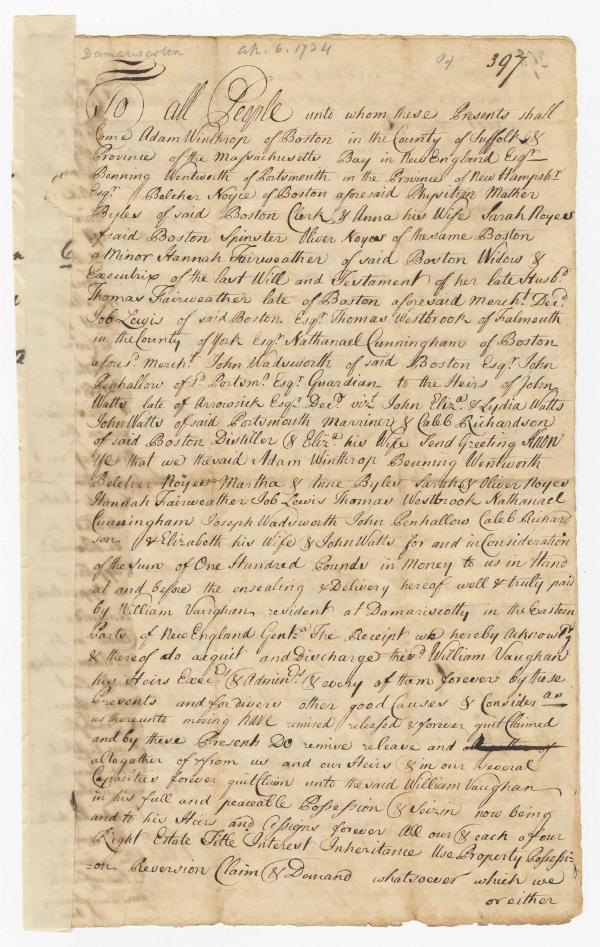 Damariscotta
Ap. 6. 1724
397
To all People unto whom these Presents shall
Come Adam Winthrop of Boston in the County of Suffolk &
Province of the Massachusetts Bay in New England Esqr.
Benning Wentworth of Portsmouth in the Province of New Hampshr.
Esqr. Belcher Noyce of Boston aforesaid Physitian Mather
Byles of said Boston Clerk & Anna his Wife Sarah Noyes
of said Boston Spinster Oliver Noyes of the same Boston
a Minor Hannah Fairweather of said Boston Widow &
Executrix of the last Will and Testament of her late Husbd.
Thomas Fairweather late of Boston aforesaid Mercht. Decd.
Job Lewis of said Boston Esqr. Thomas Westbrook of Falmouth
in the County of York Esqr. Nathanael Cunningham of Boston
afores. Mercht. John Wadsworth of said Boston Esqr. John
Penhallow of sd. Portsmo. Esqr. Guardian to the Heirs of John
Watts late of Arrowsick Esqr. Decd. vizt. John Eliza. & Lydia Watts
John Watts of said Portsmouth Marriner & Caleb Richardson
of said Boston Distiller & Eliza. his Wife Send Greeting Know
Ye that we the said Adam Winthrop Benning Wentworth
Belcher Noyes Martha & Anne Byles Sarah & Oliver Noyes
Hannah Fairweather Job Lewis Thomas Westbrook Nathanael
Cunningham Joseph Wadsworth John Penhallow Caleb Richard
son & Elizabeth his Wife & John Watts for and in Consideration
of the sum of One Hundred Pounds in Money to us in Hand
at and before the ensealing & Delivery hereof well & truly paid
by William Vaughan resident at Damariscotty in the Eastern
Parts of New England Gent. The Receipt we hereby Acknow
& thereof do acquit and Discharge the sd. William Vaughan
his Heirs Execs. & Admins. & every of them forever by these
Presents and for divers other good Causes & Consider
us thereunto moving Have remised released & forever quit Claimed
and by these Presents Do remise release and
altogather of from us and our Heirs & in our Several
Capacities forever quit Claim unto the said William Vaughan
in his full and peaceable Possession & Seizin now being
and to his Heirs and Assigns forever All our & each of our
Right Estate Title Interest Inheritance Use Property Possessi-
-on Reversion Claim & Demand whatsoever which we
or either